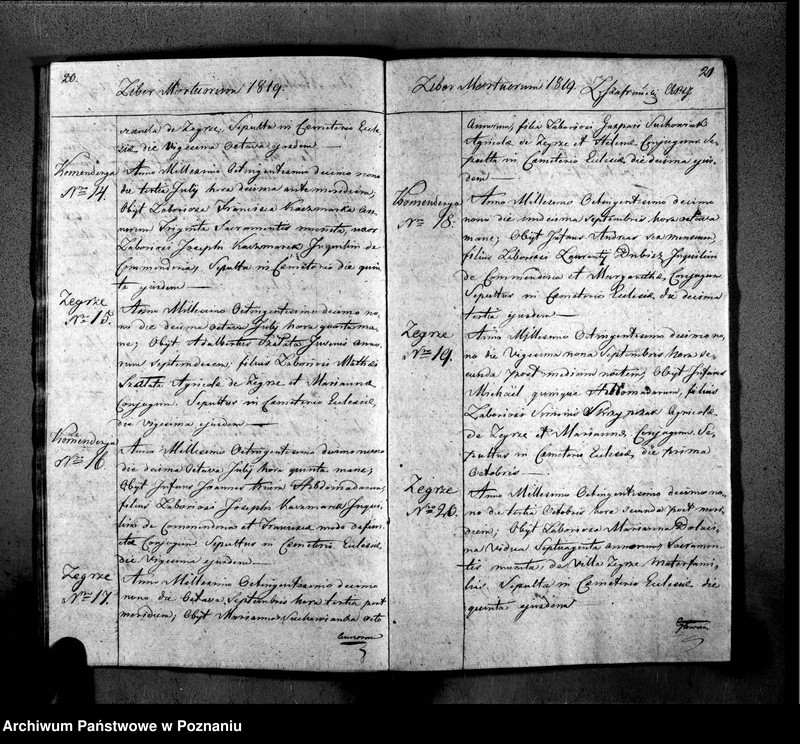 20.
Liber Mortuorum 1819.
de Zegrze. Sepulta in Cemeterio Eccle
siæ die Vigesima Octava ejusdem
Komenderya
Nro 14.
Anno Millesimo Octingentesimo decimo nono
die tertia July hora decima ante meridiem,
Obijt Laboriosa Francisca Kaczmarka An
norum Triginta Sacramentis munita, uxor
Laboriosi Josephi Kaczmarek Inquilin de
Commenderia, Sepulta in Cemeterio die quin
ta ejusdem
Zegrze
Nro 15.
Anno Millesimo Octingentesimo decimo no
no die decima octava July hora quarta ma
ne; Obijt Adalbertus Szlata Juvenis anno
rum septemdecem; filius Laboriosi Mathæ
Szlata Agricolæ de Zegrze et Mariannæ
Conjugum. Sepultus in Cemeterio Ecclesiæ,
die Vigesima ejusdem
Komenderya
Nro 16.
Anno Millesimo Octingentesimo decimo nono
die decima Octava July hora quinta mane;
Obijt Infans Joannes trium Hebdomadarum,
filius Laboriosi Josephi Kaczmarek Inqui
lini de Commenderia et Francisca modo defun
cta Conjugum Sepultus in Cemeterio Ecclesiæ,
die Vigesima ejusdem
Zegrze
Nro 17.
Anno Millesimo Octingentesimo decimo
nono die Octava Septembris hora tertia post
meridiem; Obijt Marianna Suchowianka octo
Annorum
21
Liber Mortuorum 1819.
Annorum, filia Laboriosi Gaspari Suchowiak
Agricolæ de Zegrze et Helenæ Conjugum Se
pulta in Cemeterio Ecclesiæ die decima ejus
dem
Komenderya
Nro 18.
Anno Millesimo Octingentesimo decimo
nono die undecima Septembris hora octava
mane; Obijt Infans Andreas sex mensium,
filius Laboriosi Laurenty Inquilin
de Commenderia et Margarethæ Conjugum
Sepultus in Cemeterio Ecclesiæ, die decima
tertia ejusdem
Zegrze
Nro 19.
Anno Millesimo Octingentesimo decimo no
no die Vigesima nona Septembris hora se
cunda post mediam noctem; Obijt Infans
Michael quinque Hebdomadarum, filius
Laboriosi Simonis Skrzypczak Agricolæ
de Zegrze et Mariannæ Conjugum. Se
pultus in Cemeterio Ecclesiæ, die prima
Octobris
Zegrze
Nro 20.
Anno Millesimo Octingentesimo decimo no
no die tertia Octobris hora secunda post meri
diem; Obijt Laboriosa Marianna
Vidua Septuaginta annorum Sacramen
tis munita, de Villa Zegrze Materfami
lias. Sepulta in Cemeterio Ecclesiæ die
quinta ejusdem
Archiwum Państwowe w Poznaniu